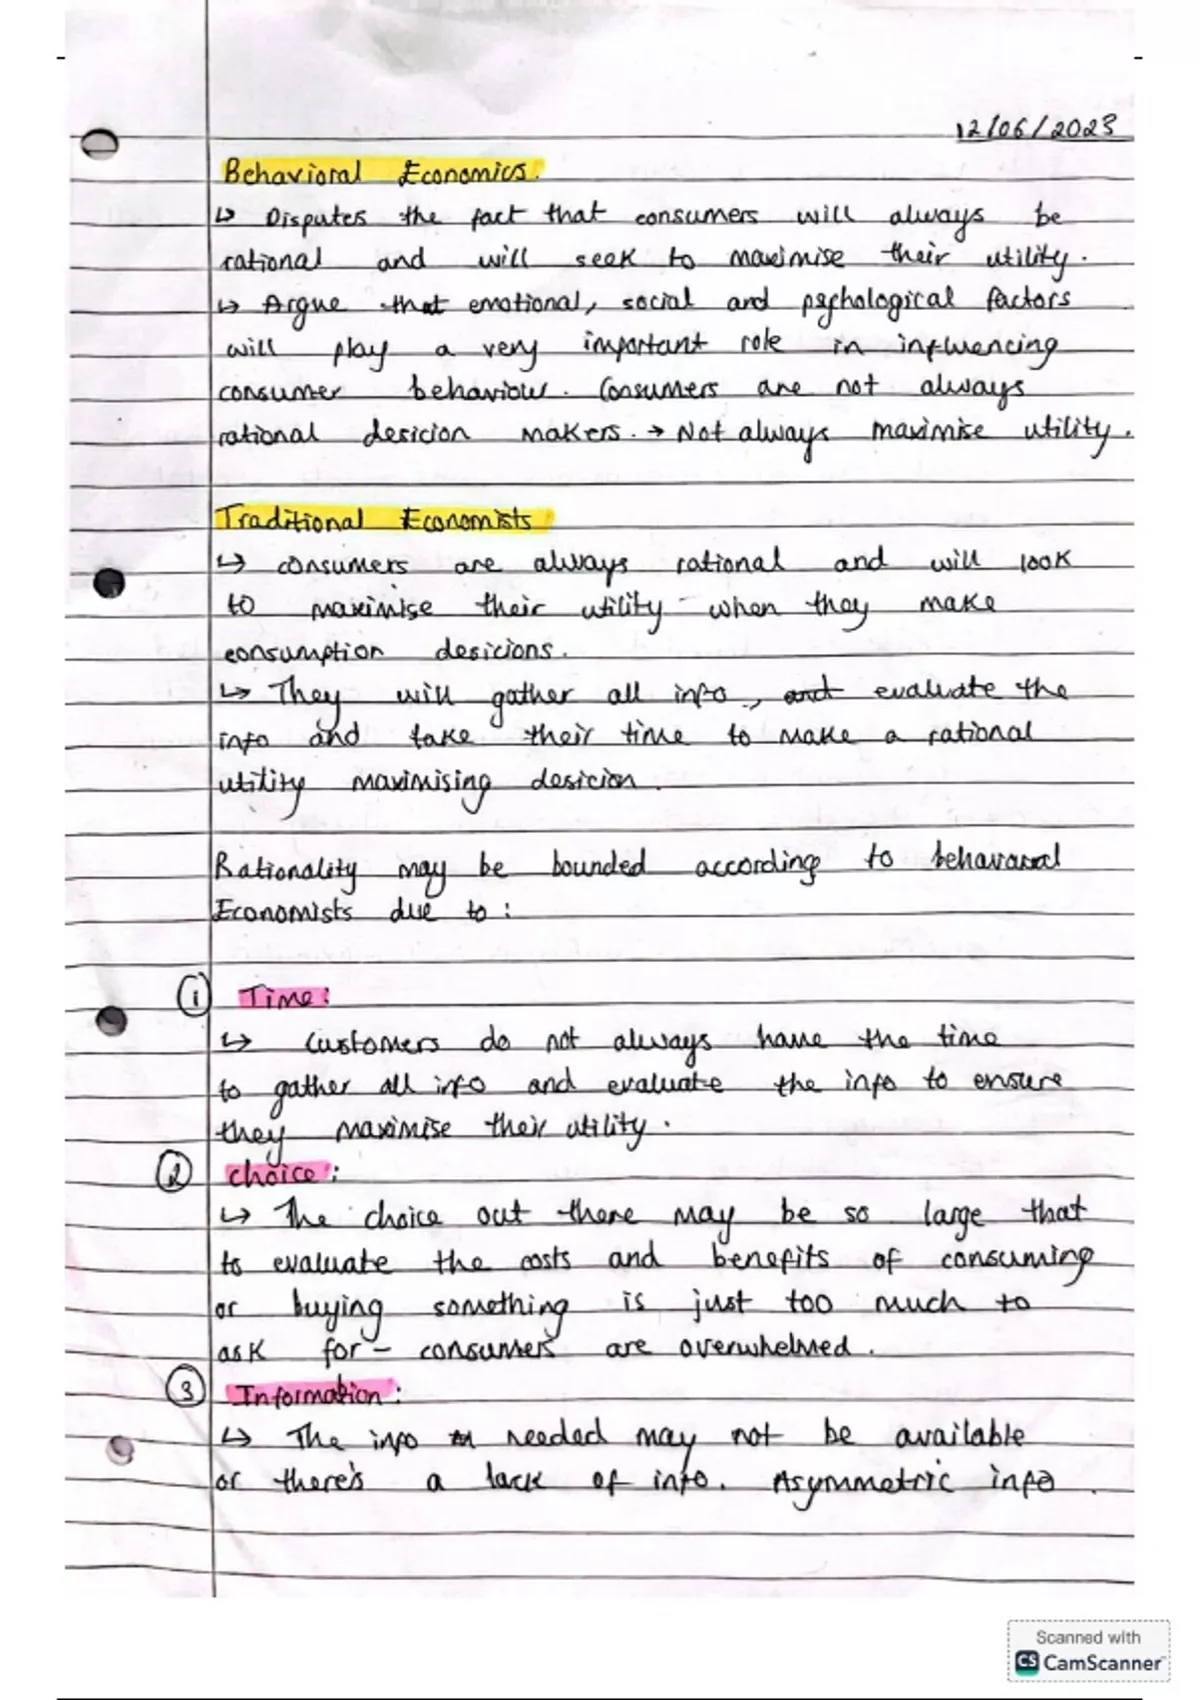 12/06/2023
Behavioral Economics.
↳ Disputes the fact that consumers will always be
rational and will seek to maximise their utility.
↳ Argue that emotional, social and psychological factors
will play a very important role in influencing
consumer behaviour. Consumers are not always
rational desicion makers. → Not always maximise utility.
Traditional Economists
↳ consumers are always rational and will look
to maximise their utility when they make
consumption desicions.
↳ They will gather all info, and evaluate the
info and take their time to make a rational
utility maximising desicion.
Rationality may be bounded according to behavioral
Economists due to:
1 Time:
↳ Customers do not always have the time
to gather all info and evaluate the info to ensure
they maximise their utility.
2 choice:
↳ The choice out there may be so large that
to evaluate the costs and benefits of consuming
or buying something is just too much to
ask for - consumers are overwhelmed.
3 Information:
↳ The info needed may not be available
or there's a lack of info. Asymmetric info.
Scanned with
CS CamScanner